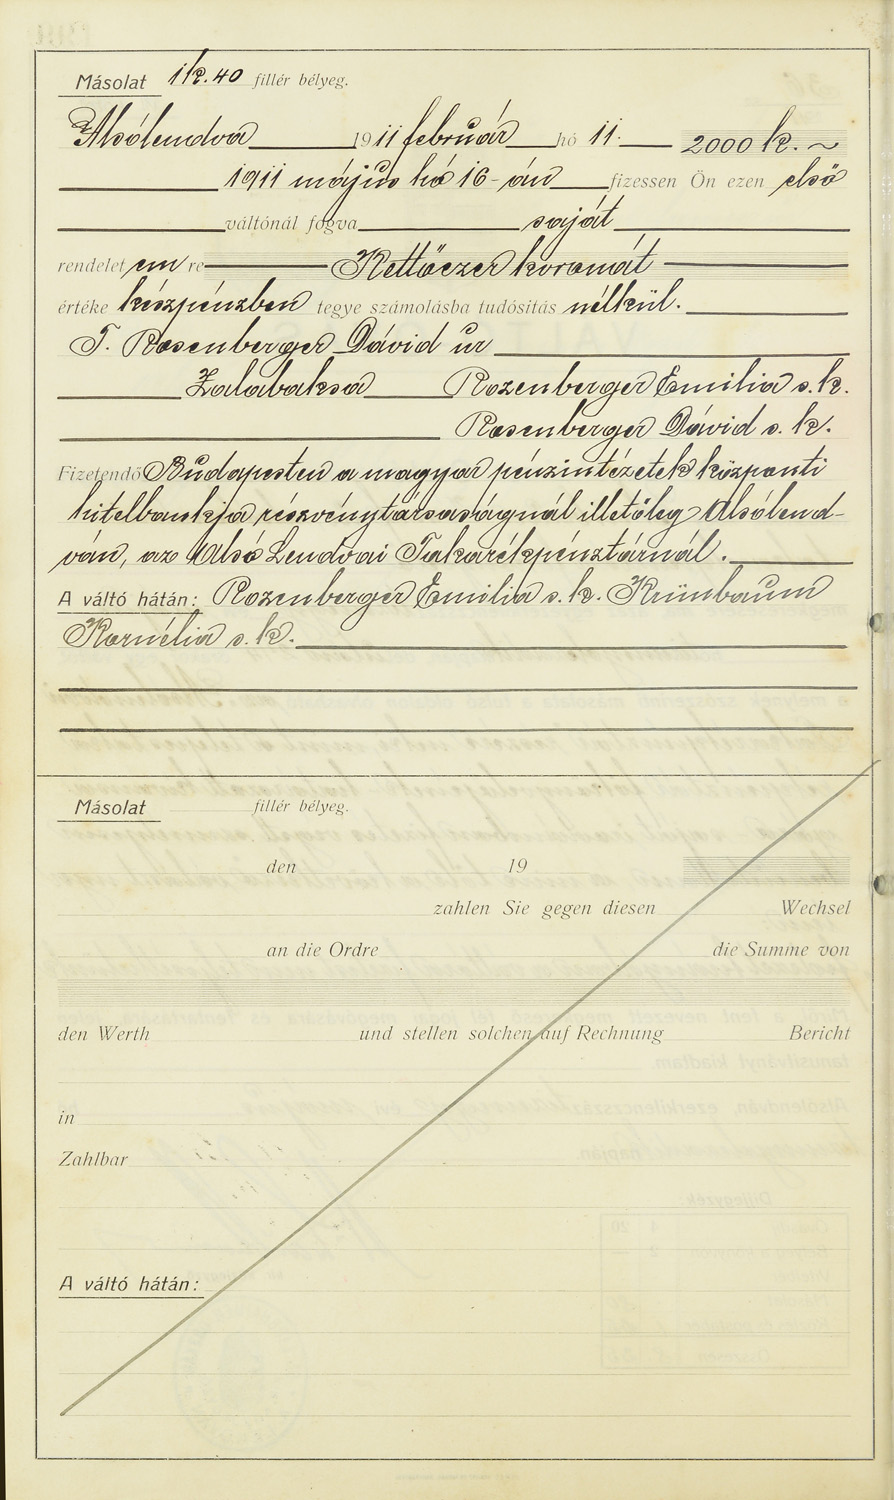 Másolat 1k.40 fillér bélyeg.
Alsólendva 1911 február hó 11. 2000 k. ~
1911 május hó 16-án fizessen Ön ezen első
váltónál fogva saját
rendeletem re Kettőezer koronát
értéke készpénzben tegye számolásba tudósitás nélkül.
T. Rosenberger Dávid úr
Zalabaksa Rozenberger Emilia s. k.
Rosenberger Dávid s. k.
Fizetendő Budapesten a magyar pénzintézetek központi
hitelbankja részvénytársaságnál illetőleg Alsólend-
ván, az Alsó Lendvai Takarékpénztárnál.
A váltó hátán: Rozenberger Emilia s. k. Krünbaum
Kornélia s. k.
Másolat fillér bélyeg.
den 19
zahlen Sie gegen diesen Wechsel
an die Ordre die Summe von
den Werth und stellen solchen auf Rechnung Bericht
in
Zahlbar
A váltó hátán: